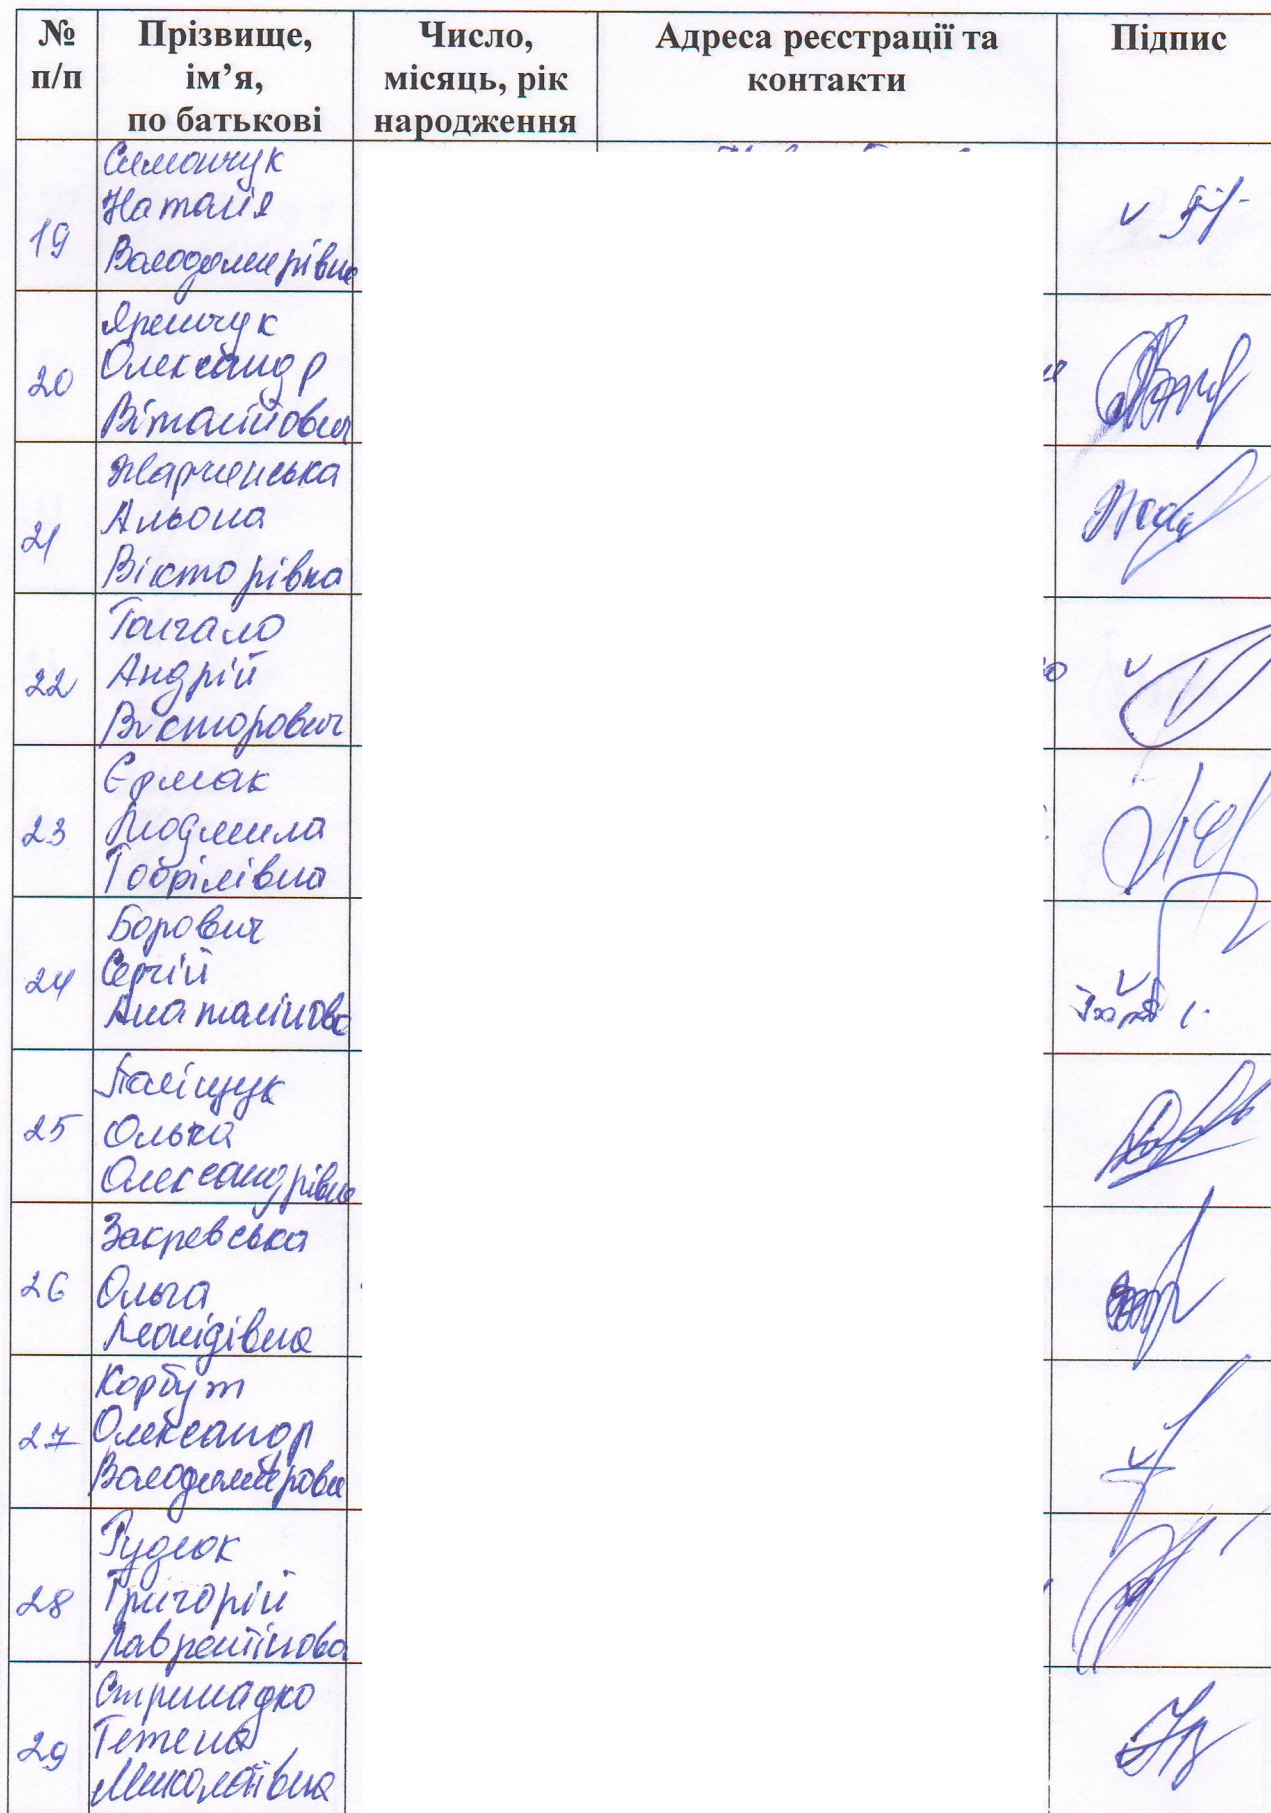 № п/п
Прізвище, ім’я, по батькові
Число, місяць, рік народження
Адреса реєстрації та контакти
Підпис
19
Симончук
Наталія
Володимирівна
20
Яремчук
Олександр
Віталійович
21
Жарченська
Альона
Вікторівна
22
Галгало
Андрій
Вікторович
23
Єрмак
Людмила
24
Борович
Сергій
25
Паліщук
Ольга
Олександрівна
26
Закревська
Ольга
Леонідівна
27
Корбут
Олександр
28
Рудюк
Григорій
29
Миколаївна